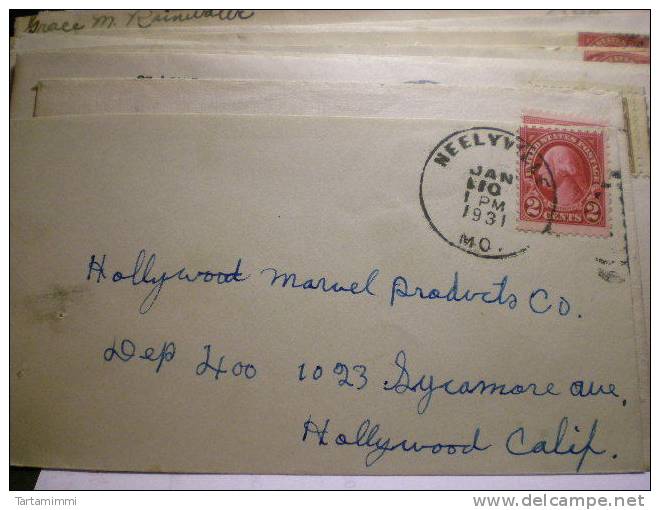 Grace M. Rainwater
NEELYVILLE
JAN
10
1 PM
1931
MO.
UNITED STATES POSTAGE
2 CENTS 2
Hollywood Marvel Products Co.
Dep 400 1023 Sycamore ave.
Hollywood Calif.
Tartamimmi
delcampe.net